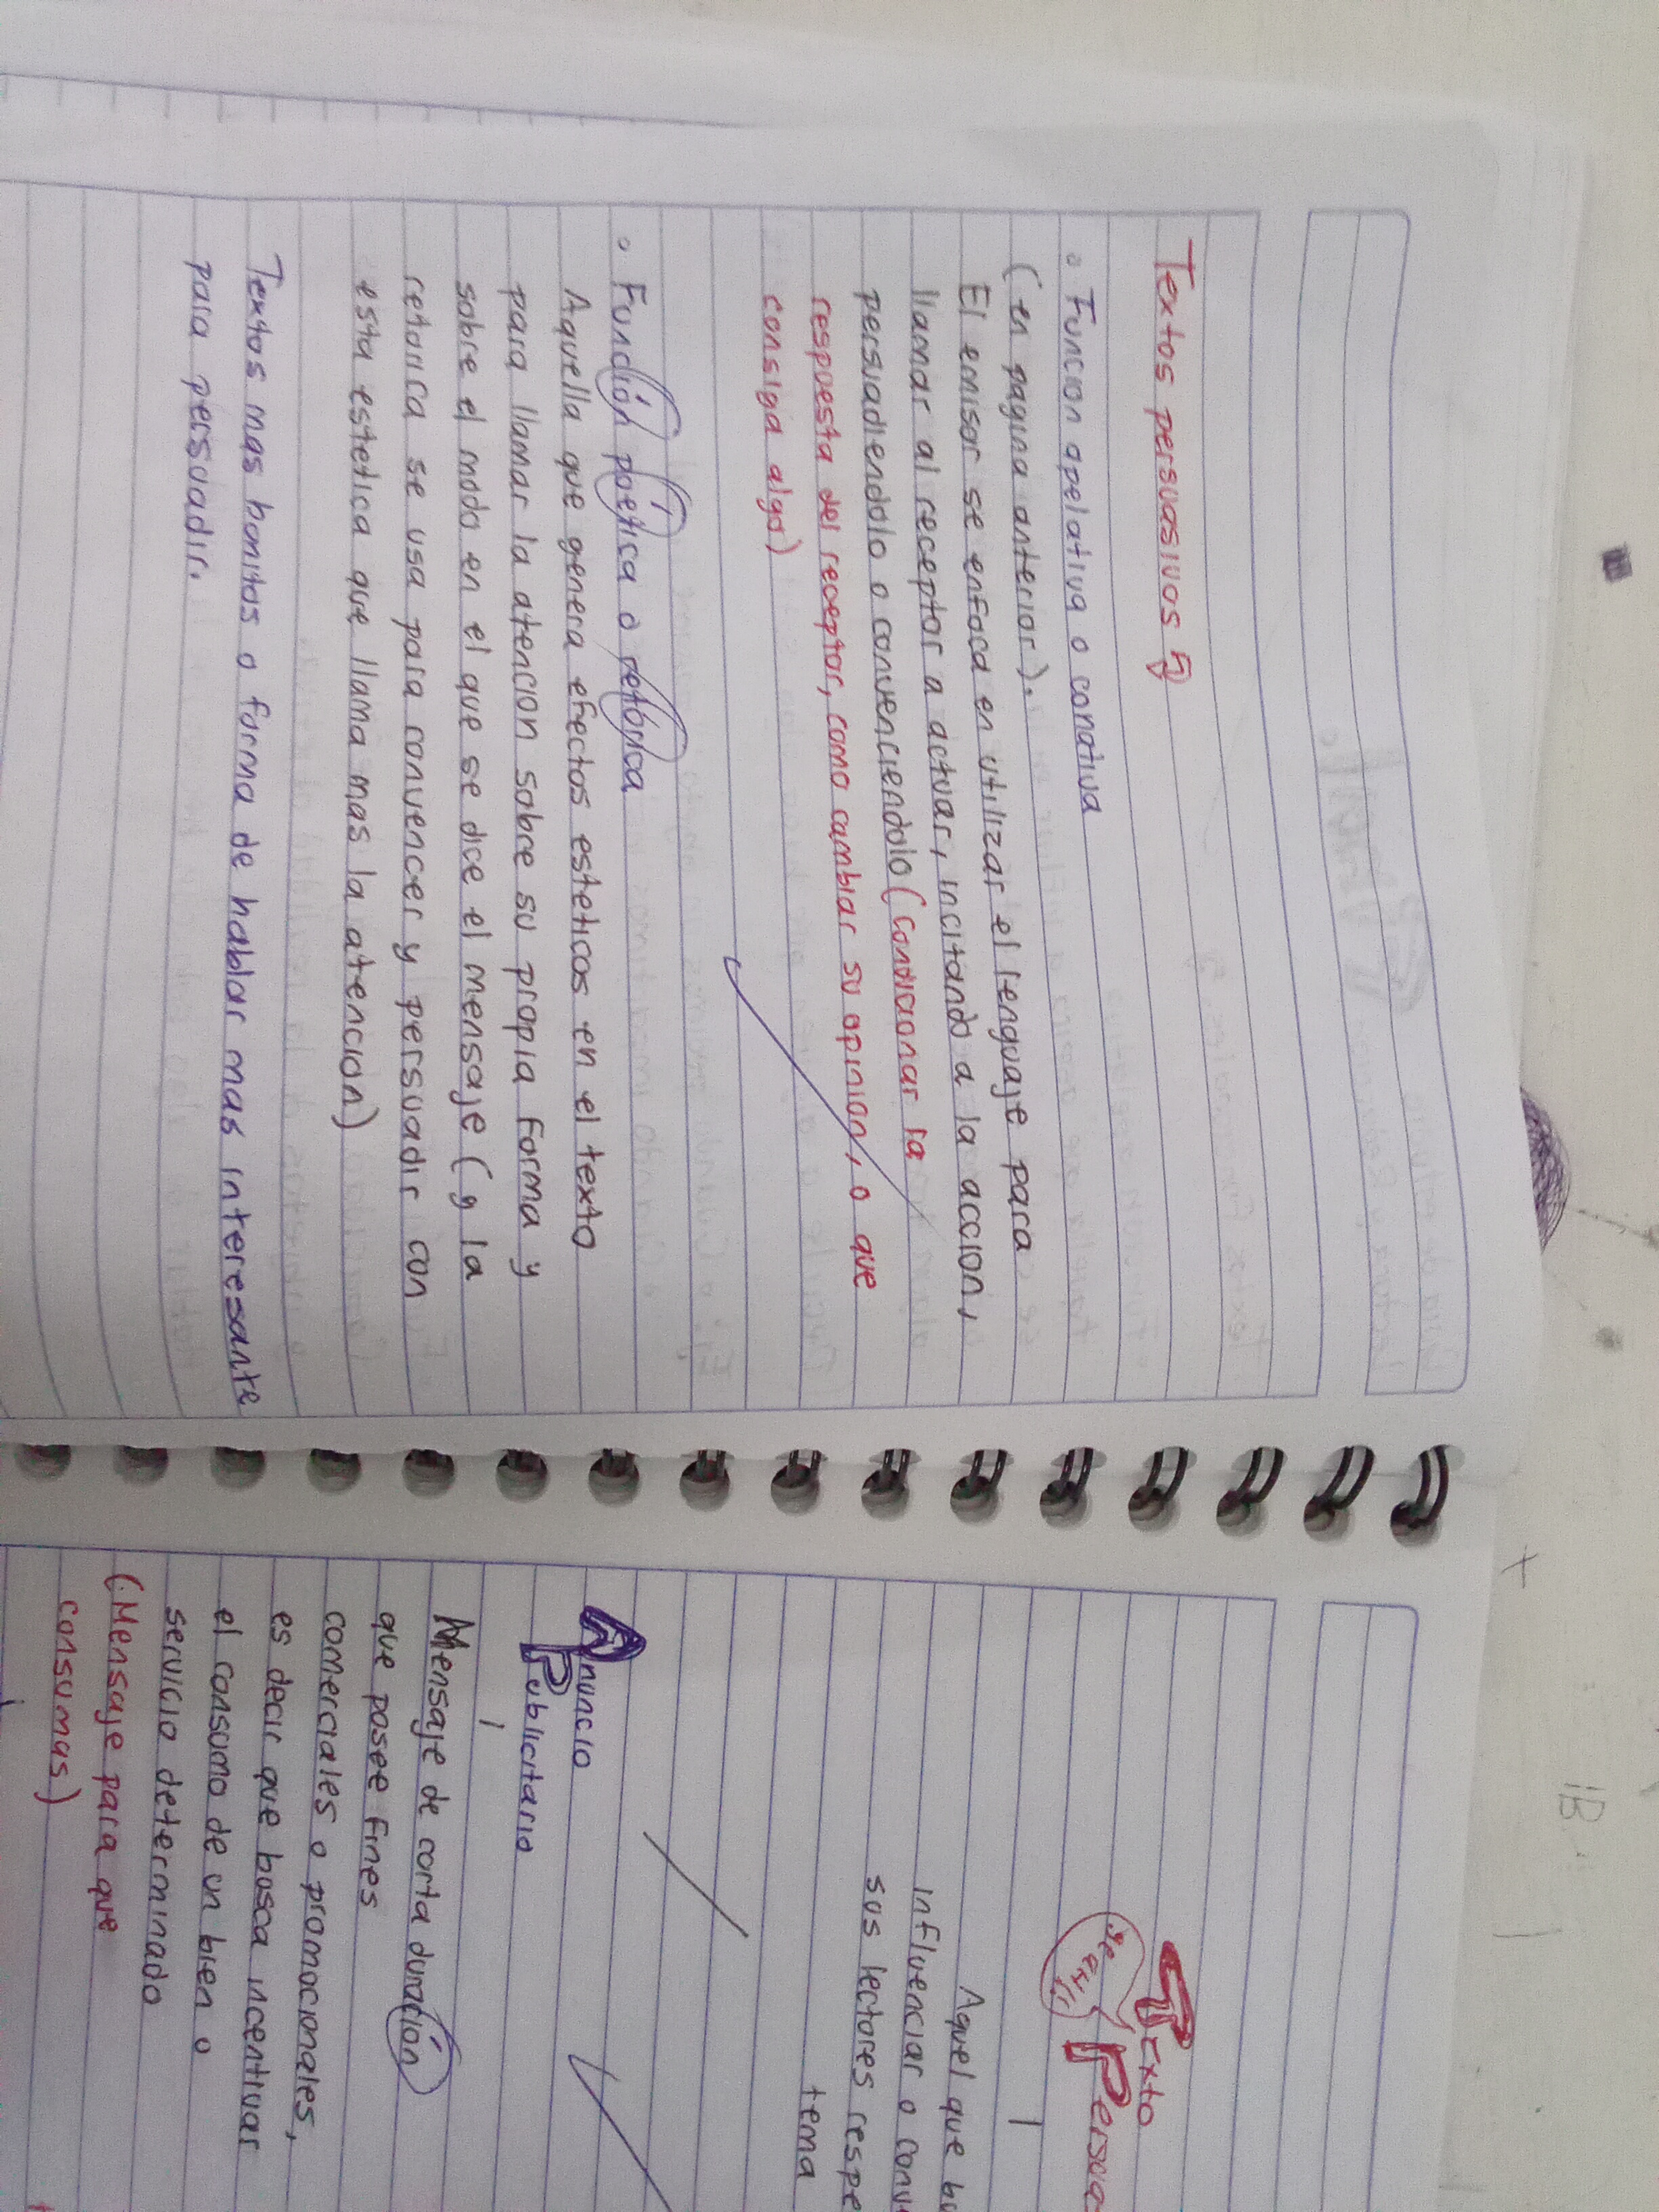 Textos persuasivos
° Funcion apelativa o conativa
(en pagina anterior).
El emisor se enfoca en utilizar el lenguaje para
llamar al receptor a actuar, incitando a la accion,
persuadiendolo o convenciendolo (Condicionar la
respuesta del receptor, como cambiar su opinion, o que
consiga algo)
° Función poética o retórica
Aquella que genera efectos esteticos en el texto
para llamar la atencion sobre su propia forma y
sobre el modo en el que se dice el mensaje (y la
retorica se usa para convencer y persuadir con
esta estetica que llama mas la atencion)
Textos mas bonitos o forma de hablar mas interesante
para persuadir.
Texto
Persua
Aquel que bu
influenciar o conv
sus lectores respe
tema
Anuncio
Publicitario
Mensaje de corta duración
que posee fines
comerciales o promocionales,
es decir que busca incentivar
el consumo de un bien o
servicio determinado
(Mensaje para que
consumas)
1B